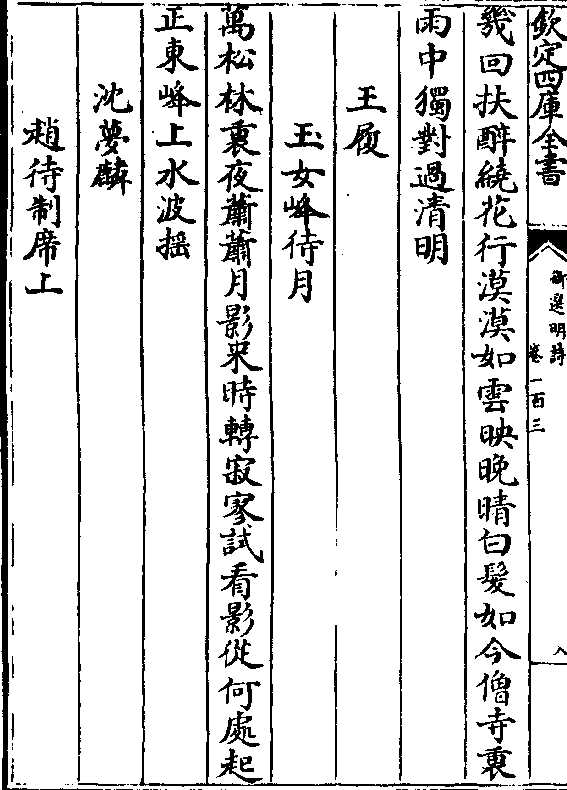 欽定四庫全書
御選明詩
卷一百三
八
幾回扶醉繞花行漠漠如雲映晚晴白髮如今僧寺裏
雨中獨對過清明
王履
玉女峰待月
萬松林裏夜蕭蕭月影來時轉寂寥試看影從何處起
正東峰上水波揺
沈夢麟
趙待制席上